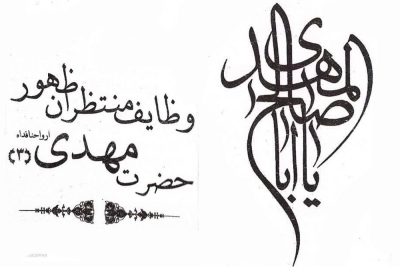 یا ابا صالح المهدی
وظایف منتظران ظهور
حضرت مهدی ارواحنافداه
(۳)